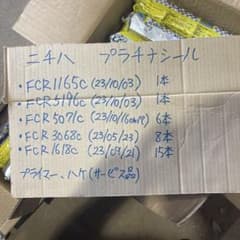 ニチハ プラチナシール
・FCR1165C (23/10/03) 1本
・FCR3196C (23/10/03) 1本
・FCR5071C (23/10/16 6本
・FCR3068C (23/05/23) 8本
・FCR1618C (23/03/21) 15本
プライマー、ハケ(サービス品)